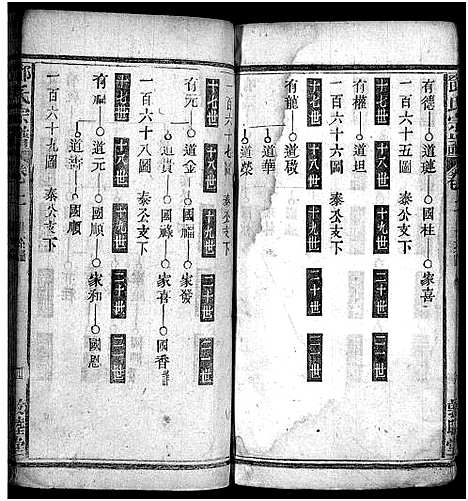 有德○道蓮○國柱○家喜
一百六十五圖 泰公支下
十七世 十八世 十九世 二十世
有權○道坦
一百六十六圖 泰公支下
十七世 十八世 十九世 二十世
有龍○道啟
○道華
○道榮
一百六十七圖 泰公支下
十七世 十八世 十九世 二十世
有元○道金○國福○家發
○國祿○家喜
○國香
一百六十八圖 泰公支下
十七世 十八世 十九世 二十世
有福○道元○國順○家和
○國恩
○國順
一百六十九圖 泰公支下
氏宗譜